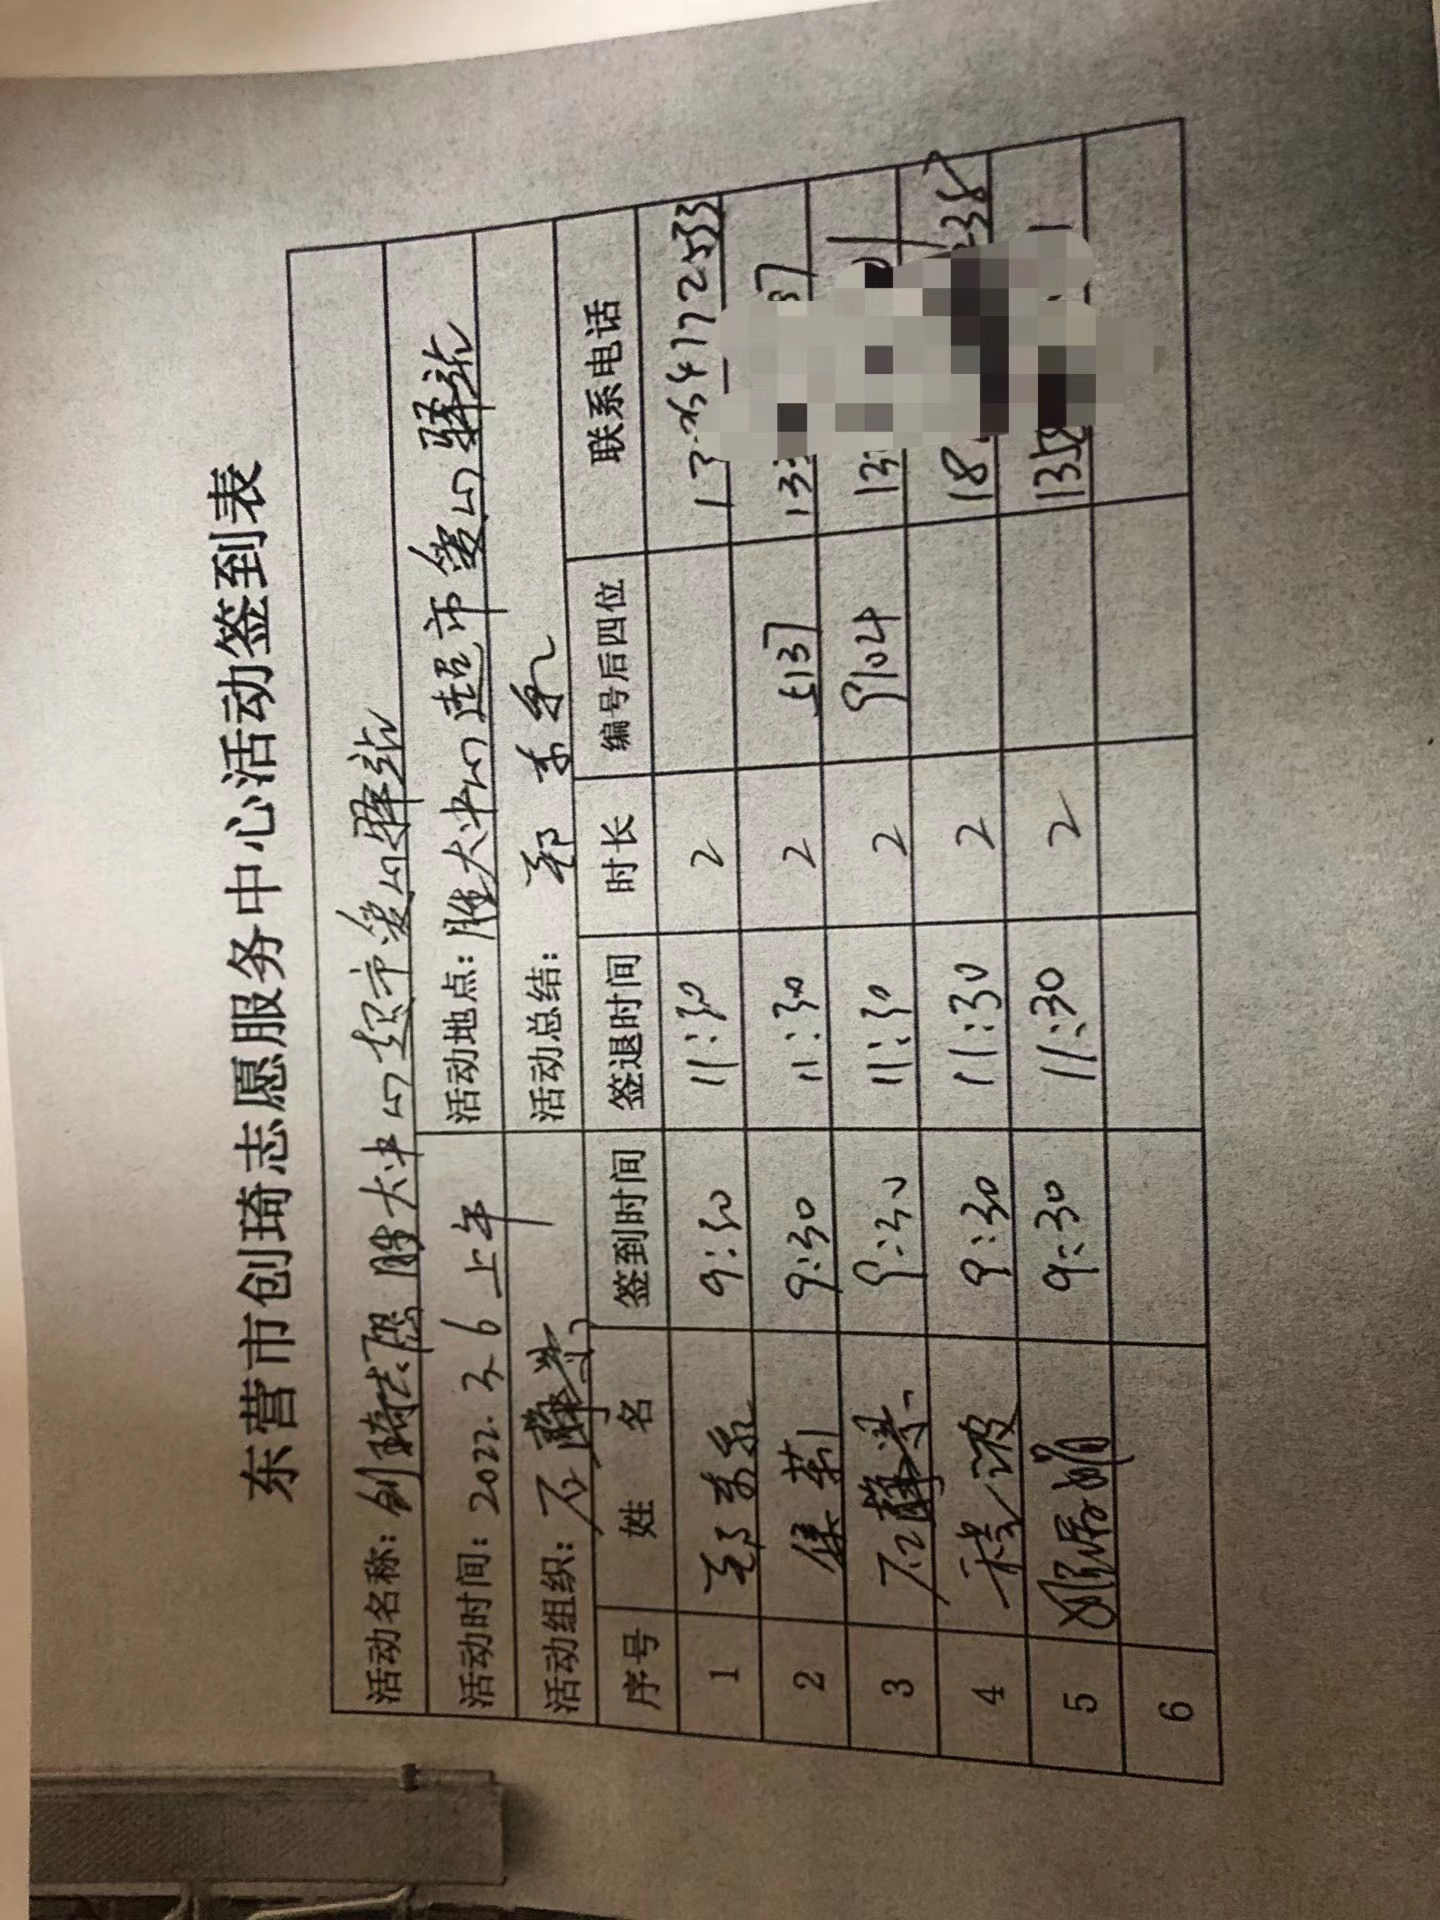 东营市创琦志愿服务中心活动签到表
活动名称：创琦志愿胜大中心超市爱心驿站
活动时间：2022.3.6 上午 活动地点：胜大中心超市爱心驿站
活动组织：石静 活动总结：郑
序号 姓名 签到时间 签退时间 时长 编号后四位 联系电话
1 郑 9:30 11:30 2
2 莉 9:30 11:30 2 5137 13
3 石静 9:30 11:30 2 9104 13
4 程波 9:30 11:30 2 18
5 9:30 11:30 2 135
6